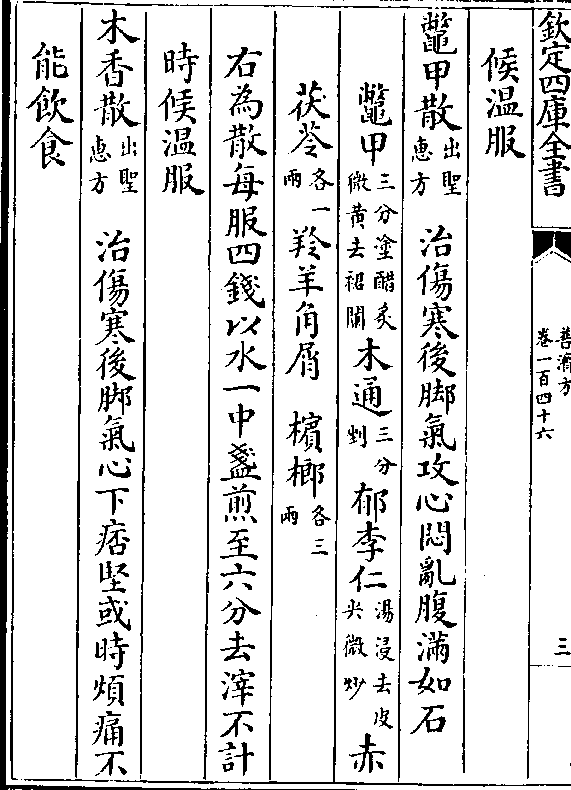 欽定四庫全書
普濟方
卷一百四十六
三
候温服
鼈甲散出聖惠方 治傷寒後脚氣攻心悶亂腹滿如石
鼈甲三分塗醋炙微黄去裙襴木通三分剉郁李仁湯浸去皮尖微炒赤
茯苓各一兩羚羊角屑 檳榔各三兩
右為散每服四錢以水一中盞煎至六分去滓不計
時候温服
木香散出聖惠方 治傷寒後脚氣心下痞堅或時煩痛不
能飲食